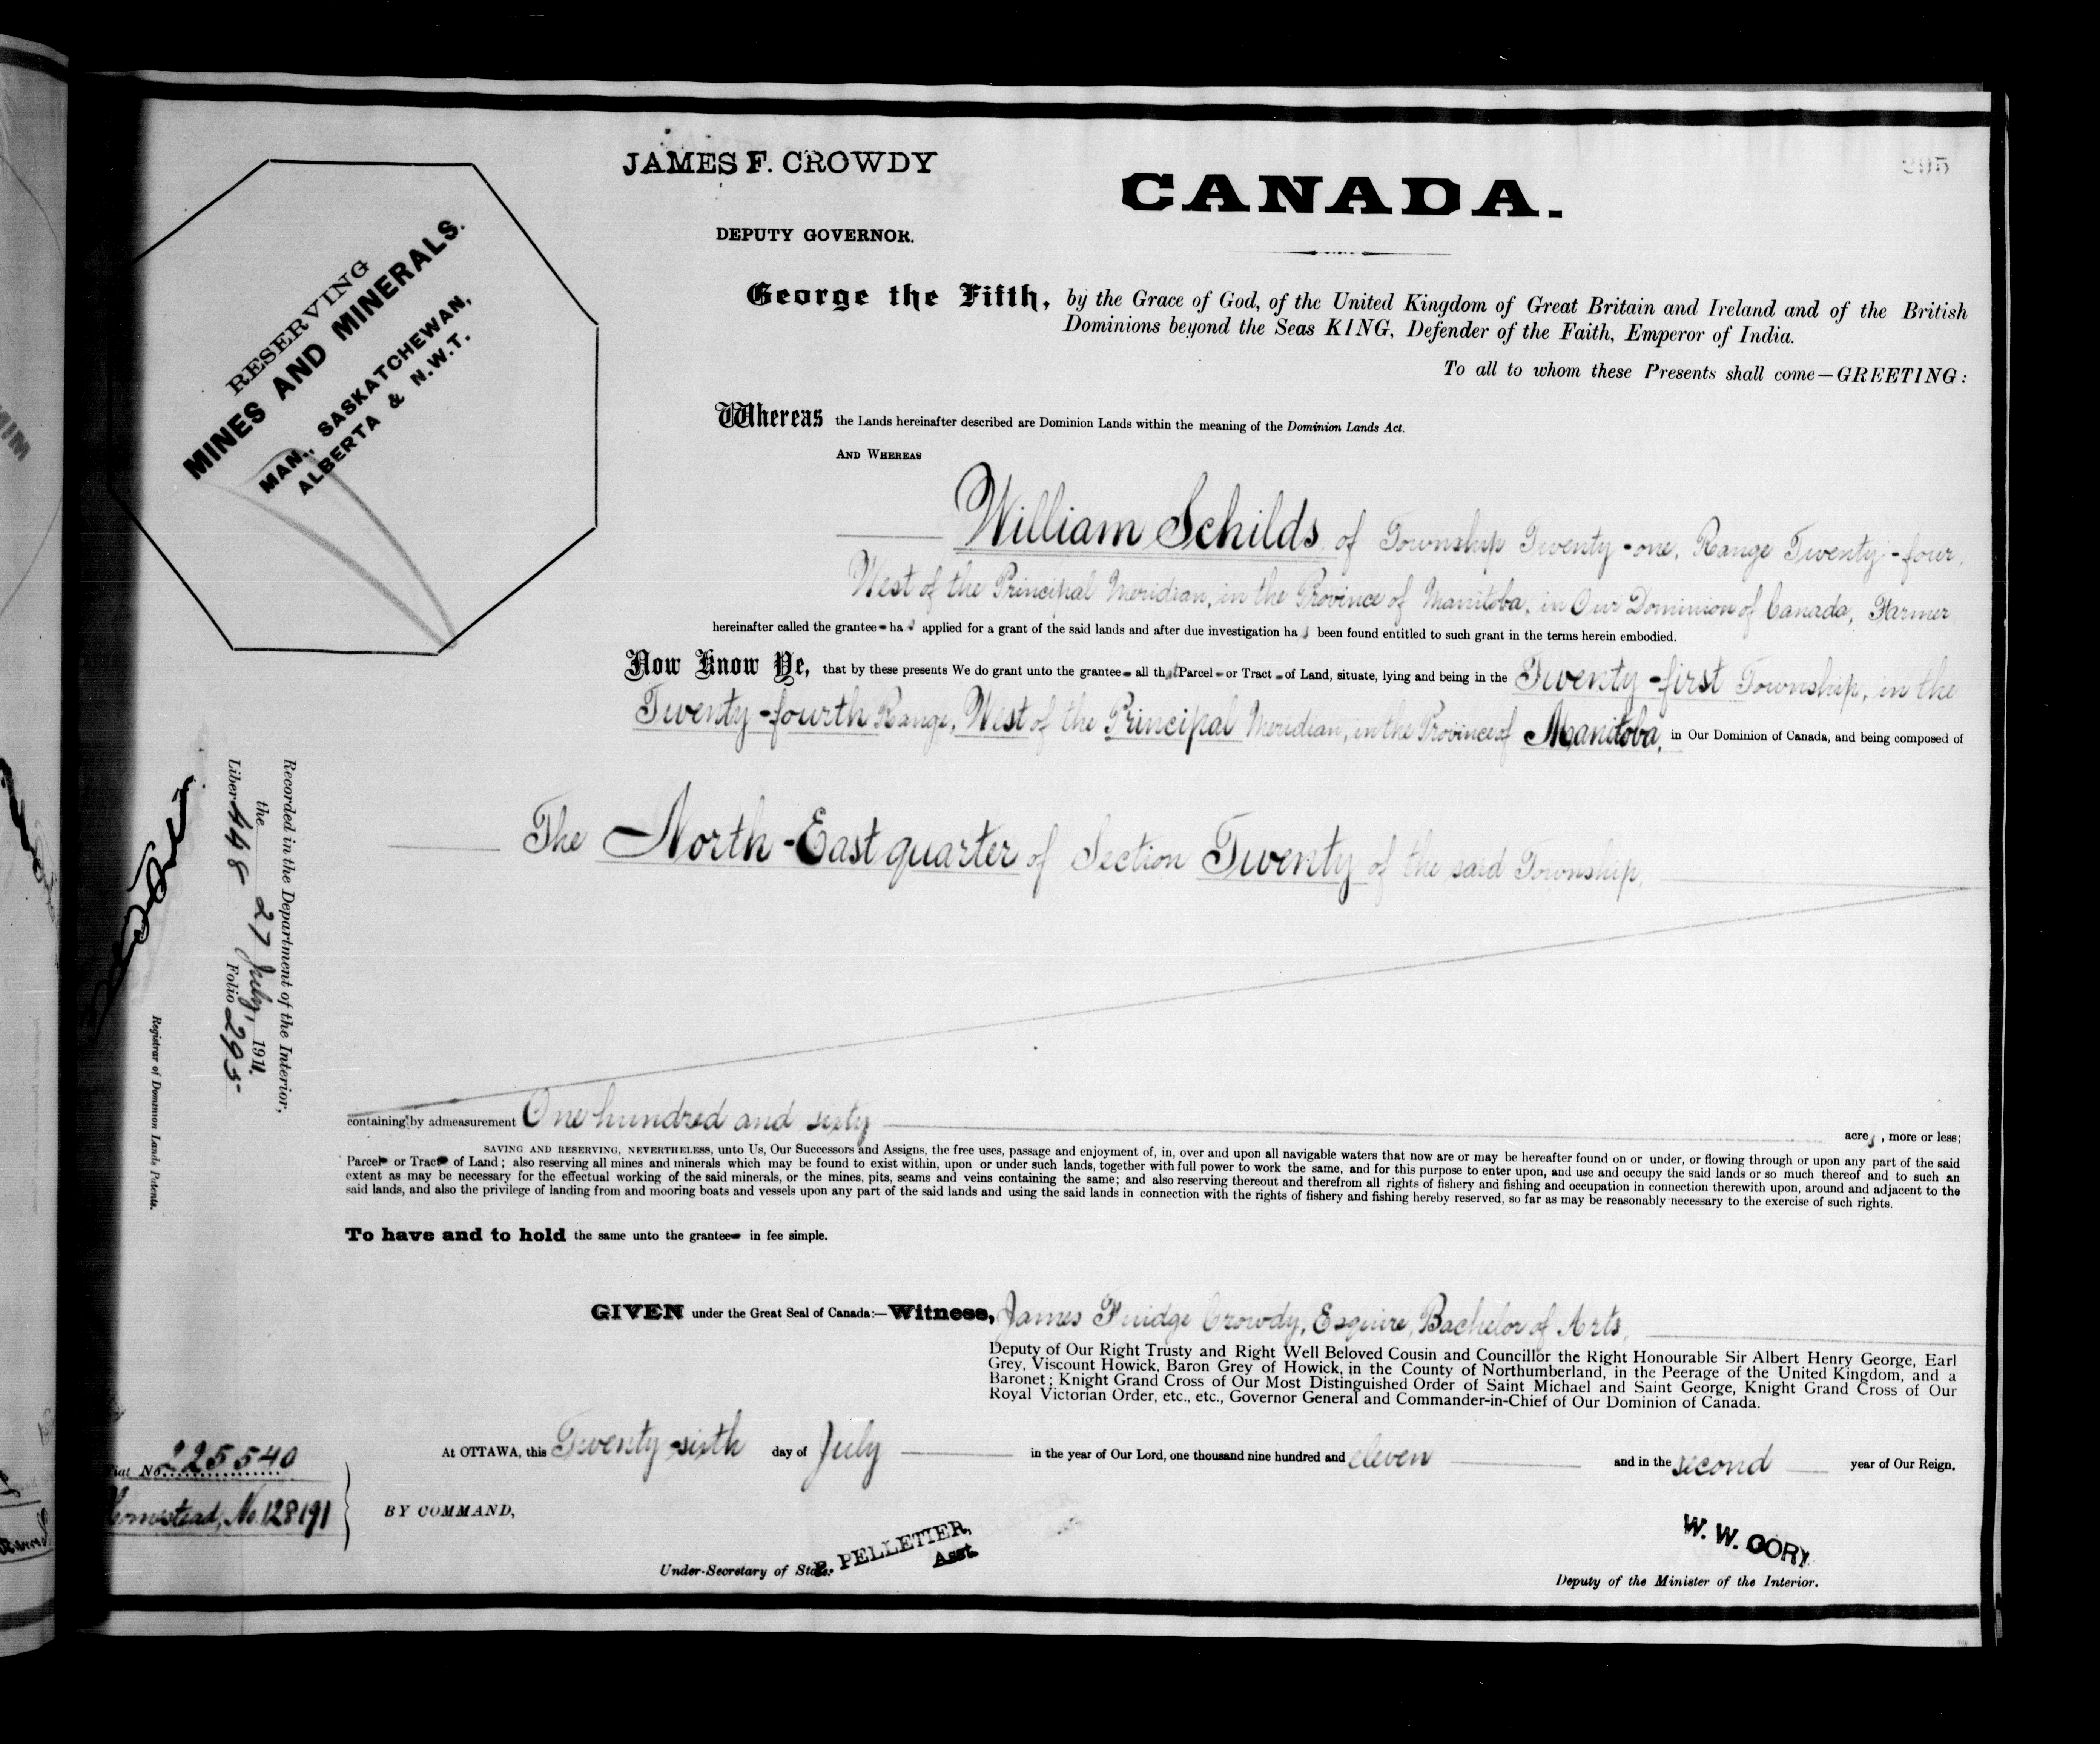 295
JAMES F. CROWDY
DEPUTY GOVERNOR.
CANADA.
RESERVING
MINES AND MINERALS.
MAN., SASKATCHEWAN,
ALBERTA & N.W.T.
George the Fifth, by the Grace of God, of the United Kingdom of Great Britain and Ireland and of the British
Dominions beyond the Seas KING, Defender of the Faith, Emperor of India.
To all to whom these Presents shall come—GREETING:
Whereas the Lands hereinafter described are Dominion Lands within the meaning of the Dominion Lands Act.
AND WHEREAS
William Schilds, of Township Twenty-one, Range Twenty-four,
West of the Principal Meridian, in the Province of Manitoba, in Our Dominion of Canada, Farmer
hereinafter called the grantee has applied for a grant of the said lands and after due investigation has been found entitled to such grant in the terms herein embodied.
Now Know Ye, that by these presents We do grant unto the grantee all that Parcel or Tract of Land, situate, lying and being in the Twenty-first Township, in the
Twenty-fourth Range, West of the Principal Meridian, in the Province of Manitoba, in Our Dominion of Canada, and being composed of
The North-East quarter of Section Twenty of the said Township,
containing by admeasurement One hundred and sixty acres, more or less;
SAVING AND RESERVING, NEVERTHELESS, unto Us, Our Successors and Assigns, the free uses, passage and enjoyment of, in, over and upon all navigable waters that now are or may be hereafter found on or under, or flowing through or upon any part of the said
Parcel or Tract of Land; also reserving all mines and minerals which may be found to exist within, upon or under such lands, together with full power to work the same, and for this purpose to enter upon, and use and occupy the said lands or so much thereof and to such an
extent as may be necessary for the effectual working of the said minerals, or the mines, pits, seams and veins containing the same; and also reserving thereout and therefrom all rights of fishery and fishing and occupation in connection therewith upon, around and adjacent to the
said lands, and also the privilege of landing from and mooring boats and vessels upon any part of the said lands and using the said lands in connection with the rights of fishery and fishing hereby reserved, so far as may be reasonably necessary to the exercise of such rights.
To have and to hold the same unto the grantee in fee simple.
GIVEN under the Great Seal of Canada:—Witness, James Fuidge Crowdy, Esquire, Bachelor of Arts,
Deputy of Our Right Trusty and Right Well Beloved Cousin and Councillor the Right Honourable Sir Albert Henry George, Earl
Grey, Viscount Howick, Baron Grey of Howick, in the County of Northumberland, in the Peerage of the United Kingdom, and a
Baronet; Knight Grand Cross of Our Most Distinguished Order of Saint Michael and Saint George, Knight Grand Cross of Our
Royal Victorian Order, etc., etc., Governor General and Commander-in-Chief of Our Dominion of Canada.
At OTTAWA, this Twenty-sixth day of July in the year of Our Lord, one thousand nine hundred and eleven and in the second year of Our Reign.
BY COMMAND,
P. PELLETIER,
Asst.
Under-Secretary of State.
W. W. CORY
Deputy of the Minister of the Interior.
Recorded in the Department of the Interior,
the 27 July, 1911.
Liber 448 Folio 295
Registrar of Dominion Lands Patents.
Fiat No. 225540
Homestead, No. 128191